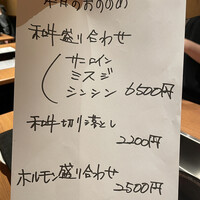 本日のおすすめ
和牛盛り合わせ
サーロイン
ミスジ
シンシン 6500円
和牛切り落とし
2200円
ホルモン盛り合わせ
2500円